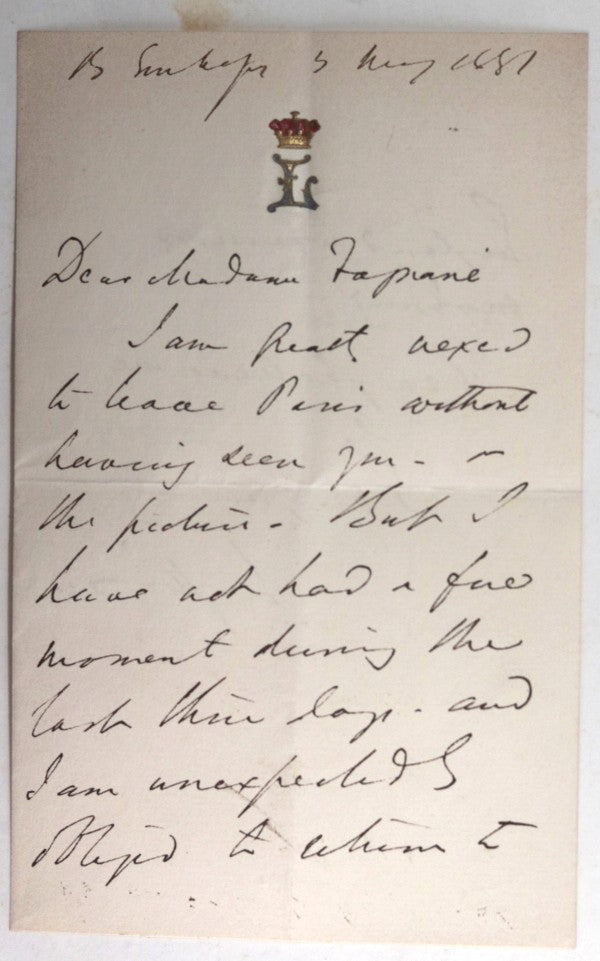 5 May 1881
L
Dear Madame
I am greatly vexed
to leave Paris without
having seen you - or
the picture - But I
have not had a free
moment during the
last three days - and
I am unexpectedly
obliged to return to